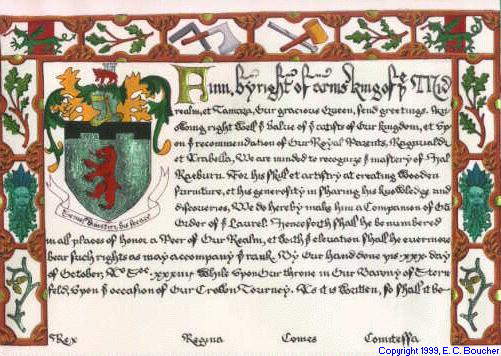 Finn, by right of arms King of yͤ Mid
realm, et Tamara, Our gracious Queen, send greetings. Kno
wing right well yͤ value of yͤ artists of Our kingdom, et up
on yͤ recommendation of Our Royal Parents, Ragnvaldr
et Arabella, We are minded to recognize yͤ mastery of Hal
Raeburn. For his skill et artistry at creating wooden
furniture, et his generosity in sharing his knowledge and
discoveries, We do hereby make him a Companion of Our
Order of yͤ Laurel. Henceforth shall he be numbered
in all places of honor a Peer of Our Realm, et with yͤ elevation shall he evermore
bear such rights as may accompany yͤ rank. By Our hand done yis xxx day
of October, Ao Soc. xxxiiii While upon Our throne in Our Barony of Stern
feld, upon yͤ occasion of Our Crown Tourney. As it is written, so shall it be
Rex Regina Comes Comitessa
Copyright 1999, E. C. Boucher